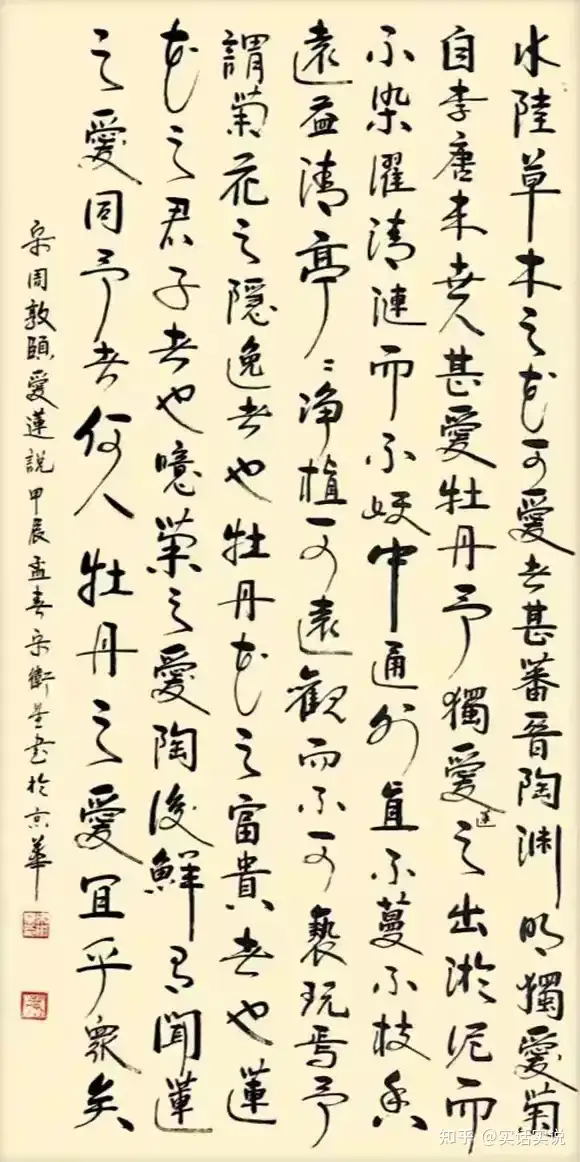 水陸草木之花可愛者甚蕃晉陶淵明獨愛菊
自李唐来世人甚愛牡丹予獨愛蓮之出淤泥而
不染濯清漣而不妖中通外直不蔓不枝香
遠益清亭〻淨植可遠觀而不可褻玩焉予
謂菊花之隱逸者也牡丹花之富貴者也蓮
花之君子者也噫菊之愛陶後鮮有聞蓮
之愛同予者何人牡丹之愛宜乎衆矣
宋周敦頤愛蓮說甲辰孟春宋衛星書於京華
知乎 @实话实说